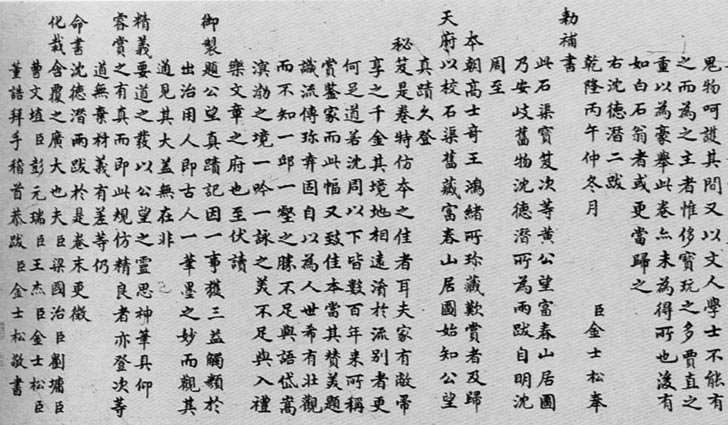 鬼物呵護其間又以文人學士不能有
之而為之主者惟侈寶玩之多賈直之
重以為豪舉此卷亦未為得所也後有
如白石翁者或更當歸之
右沈德潛二跋
乾隆丙午仲冬月 臣金士松奉
勅補書
此石渠寶笈次等黃公望富春山居圖
乃安岐舊物沈德潛所為兩跋自明沈
周至
本朝高士奇王鴻緒所珍藏歎賞者及歸
天府以校石渠舊藏富春山居圖始知公望
真蹟久登
秘笈是卷特仿本之佳者耳夫家有敝帚
享之千金其境地相遠淆於流別者更
何足道若沈周以下皆數百年來所稱
賞鑒家而此幅又致佳本當其贊美題
識流傳珍弆固自以為人世希有壯觀
而不知一邱一壑之勝不足與語岱嵩
溟渤之境一吟一詠之美不足與入禮
樂文章之府也至伏讀
御製題公望真蹟記因一事獲三益觸類於
出治用人即古人一筆墨之妙而觀其
道見其大蓋無在非
精義要道之發以公望之靈思神筆具仰
睿賞之有真而即此規仿精良者亦登次等
道無棄材義有差等仍
命書沈德潛兩跋於是卷末更徵
化裁含覆之廣大也夫臣梁國治臣劉墉臣
曹文埴臣彭元瑞臣王杰臣金士松臣
董誥拜手稽首恭跋臣金士松敬書